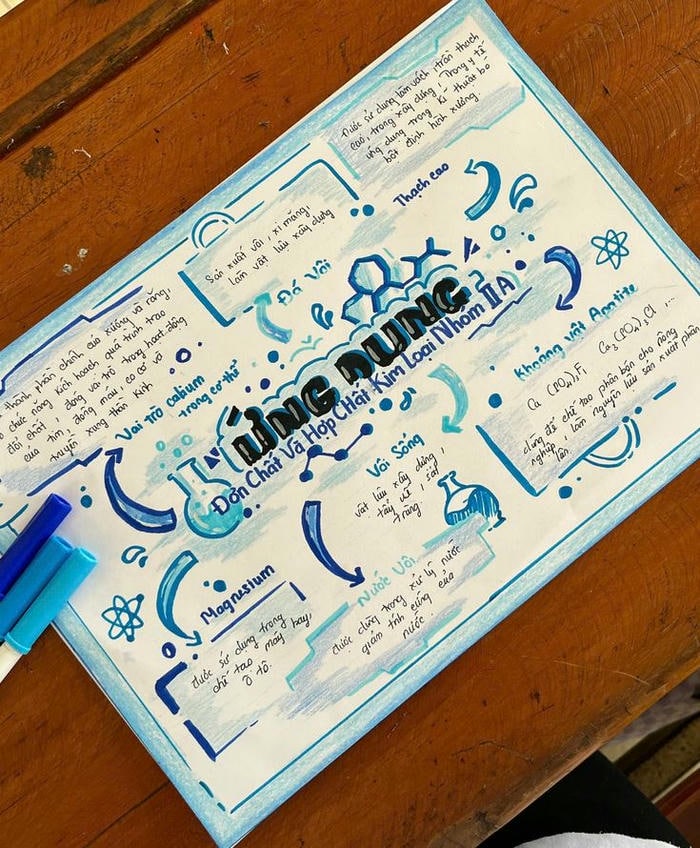 ỨNG DỤNG
Đơn Chất Và Hợp Chất Kim Loại Nhóm IIA
Được sử dụng làm vách, trần thạch
cao, trong xây dựng, Trong y tế
ứng dụng trong kĩ thuật bó
bột định hình xương.
Thạch cao
Sản xuất vôi, xi măng,
làm vật liệu xây dựng
Đá Vôi
thành phần chính của xương và răng,
chức năng kích hoạt quá trình trao
đổi chất, đóng vai trò trong hoạt động
của tim, đông máu, co cơ và
truyền xung thần kinh
Vai trò calium
trong cơ thể
Khoáng vật Apatite
Ca (PO₄)₃F, Ca₅(PO₄)₃Cl,...
dùng để chế tạo phân bón cho nông
nghiệp, làm nguyên liệu sản xuất phân
lân.
Vôi Sống
vật liệu xây dựng,
tẩy uế, sát
trùng
Nước Vôi
được dùng trong xử lý nước
giảm tính cứng của
nước
Magnesium
được sử dụng trong
chế tạo máy bay,
ô tô.